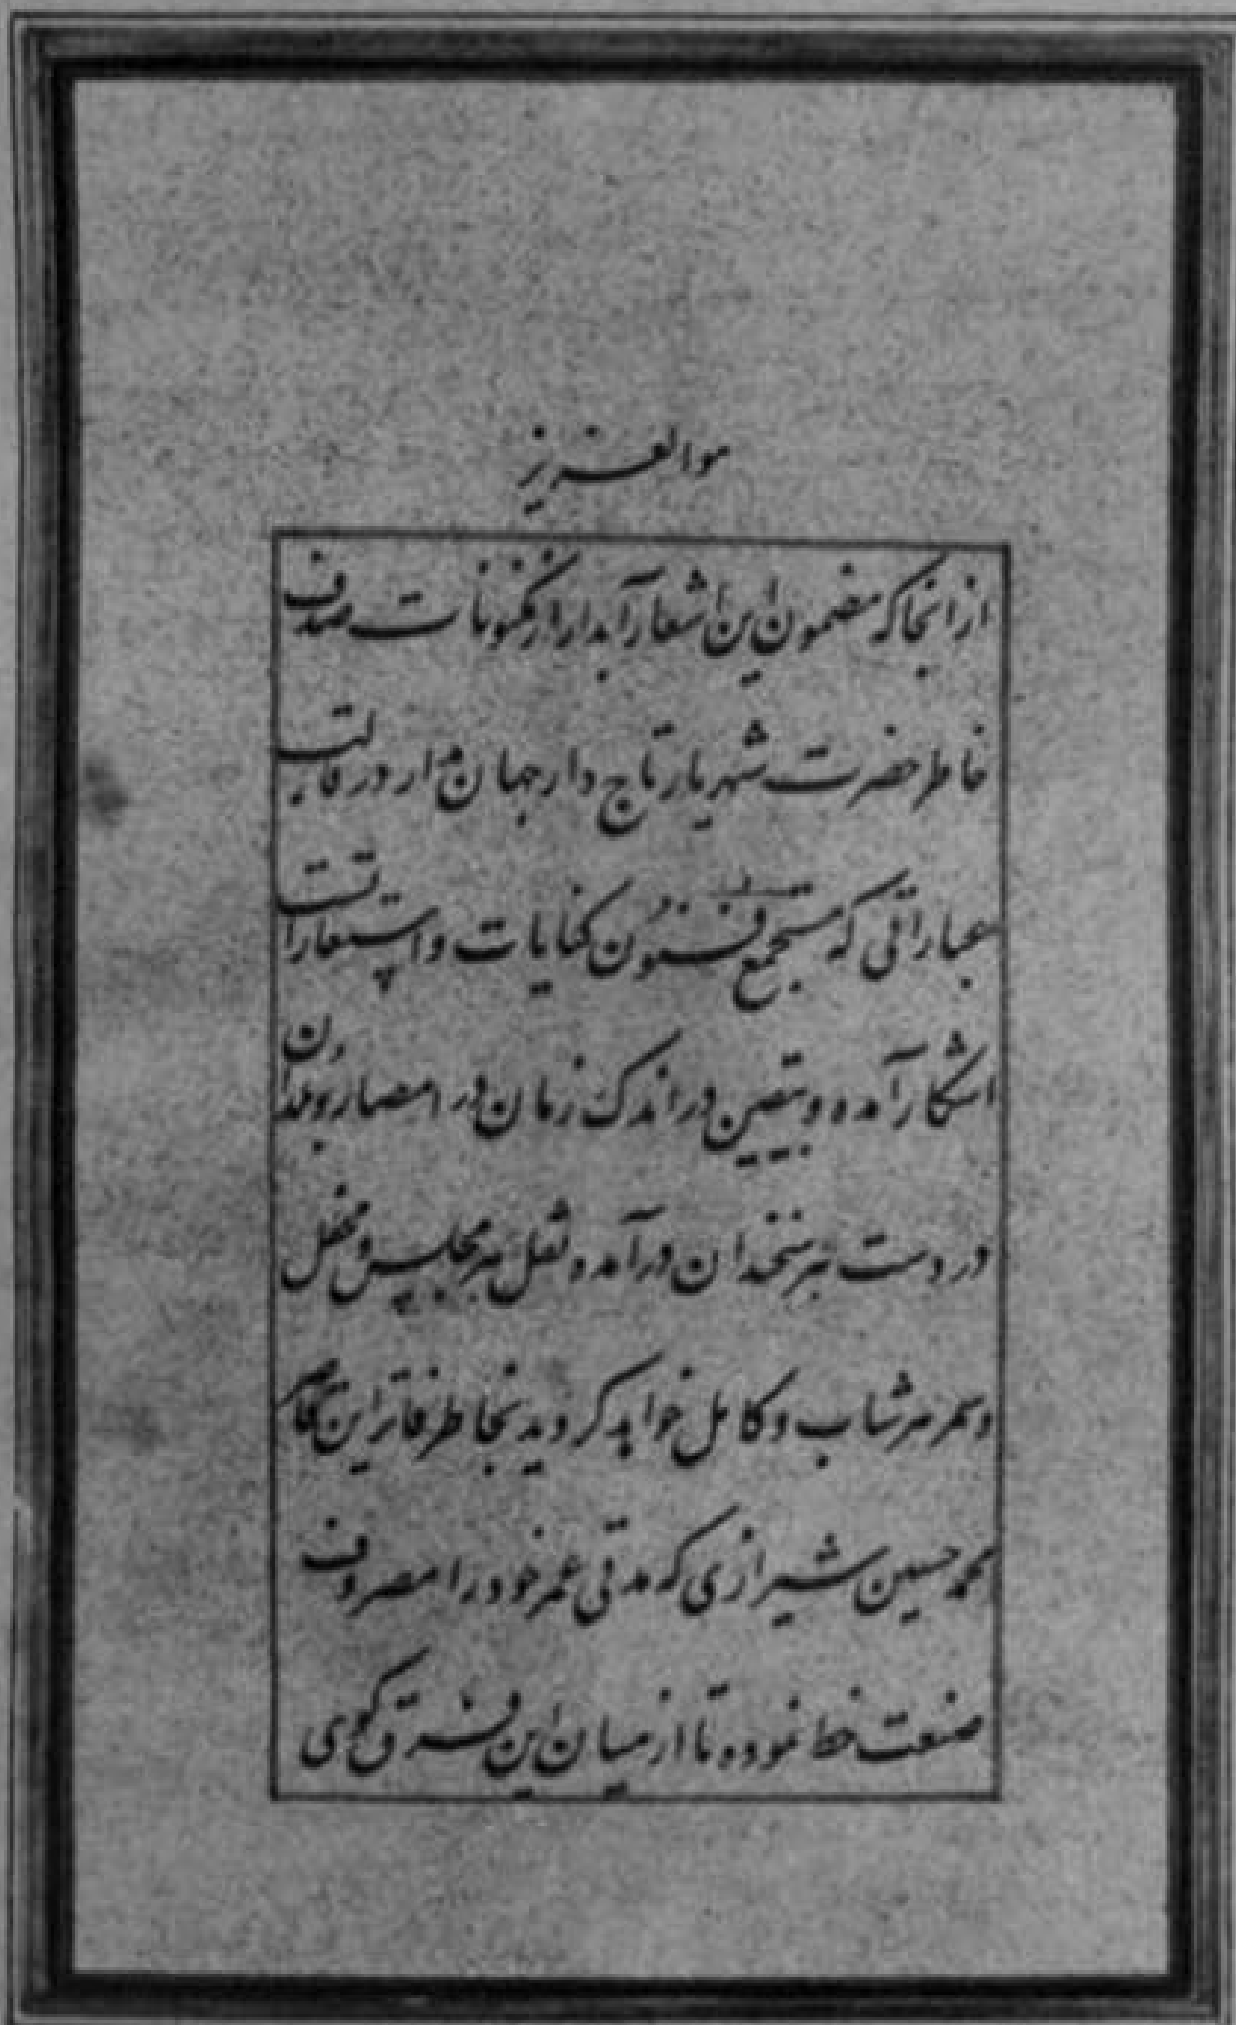 هوالعزیز
از انجا که مضمون این اشعار آبدار از مکنونات صدف
خاطر حضرت شهریار تاج دار جهان مدار در قالب
عباراتی که مستجمع فنون کنایات و استعارات است
اشکار آمده و بیقین در اندک زمان در امصار و بلدان
در دست هر سخندان در آمده و نقل هر مجلس و محفل
و سمر هر شاب و کامل خواهد کردید بخاطر فاتر این قاصر
محمد حسین شیرازی که مدتی عمر خود را مصروف
صنعت خط نموده تا از میان این فرق کوی